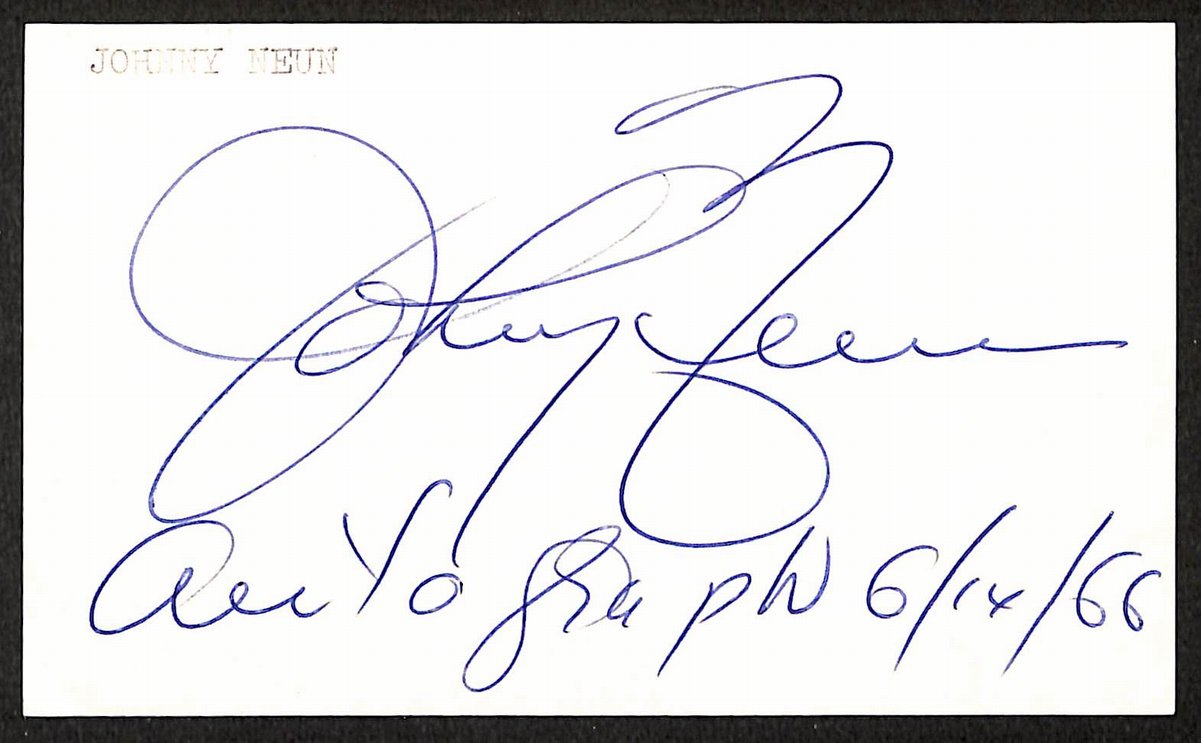 JOHNNY NEUN
Johnny Neun
Autograph 6/14/66